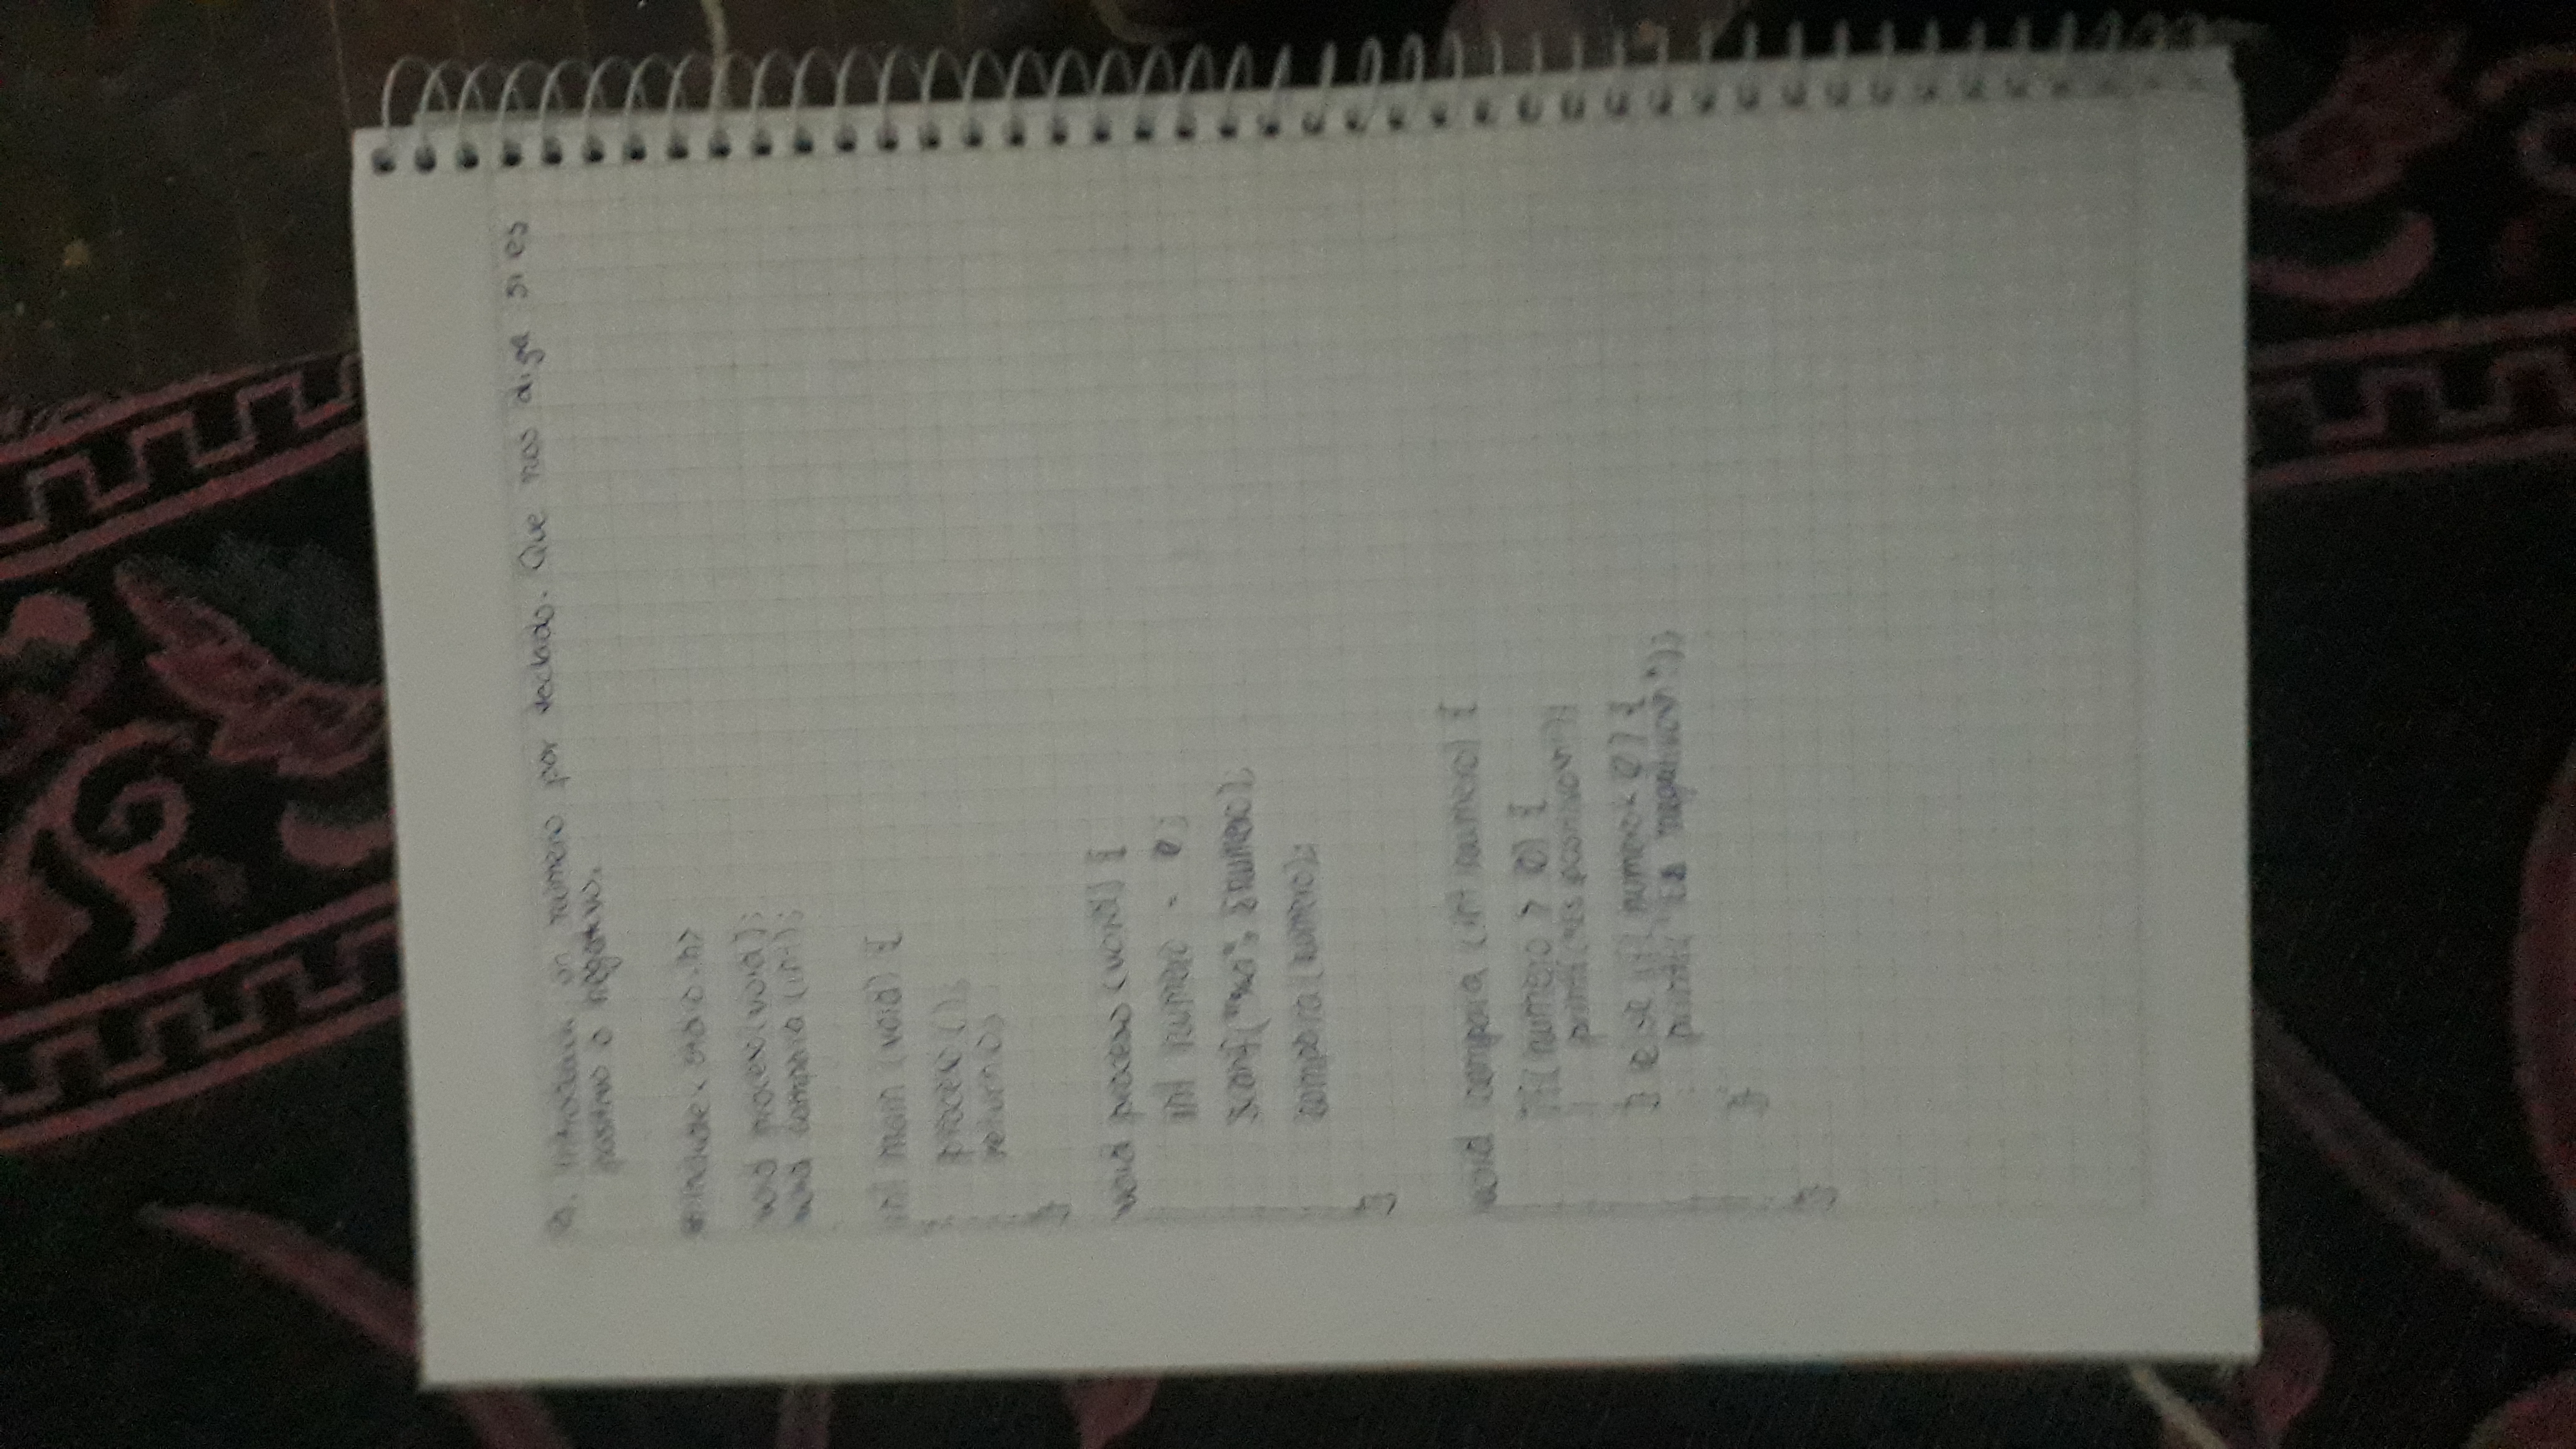 Introducir un número por teclado. Que nos diga si es
positivo o negativo.
#include <stdio.h>
void proceso(void);
void compara (int);
int main (void) {
proceso();
return 0;
}
void proceso (void) {
int numero = 0;
scanf("%d", &numero);
compara(numero);
}
void compara (int numero) {
if (numero > 0) {
printf("es positivo\n");
} else if( numero < 0) {
printf("Es negativo\n");
}
}